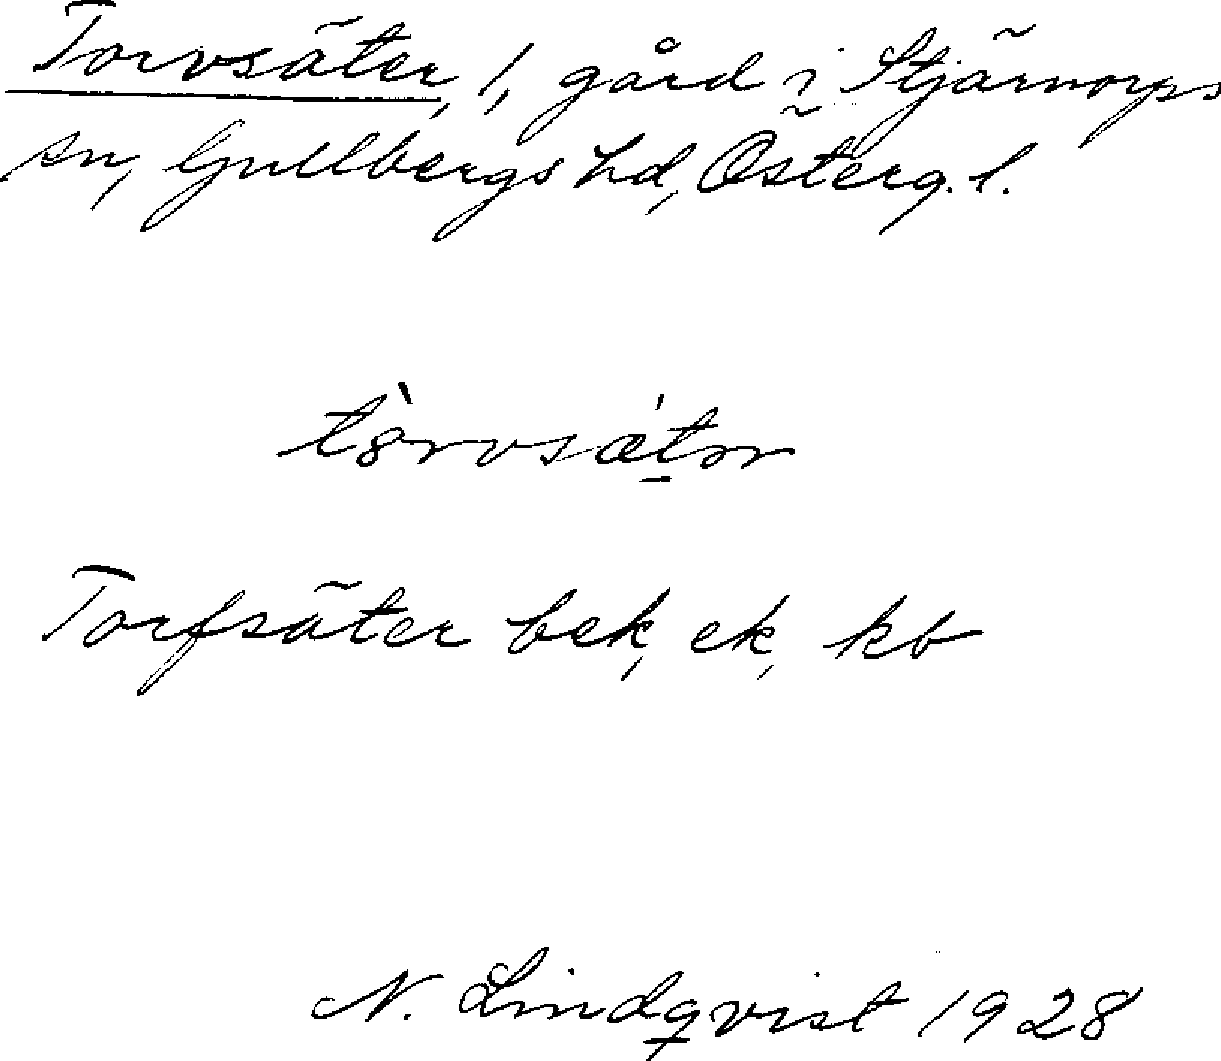 Torvsäter, 1, gård i Stjärnorps
sn, Gullbergs hd, Österg. l.
Torfsäter bek, ek, kb
N. Lindqvist 1928